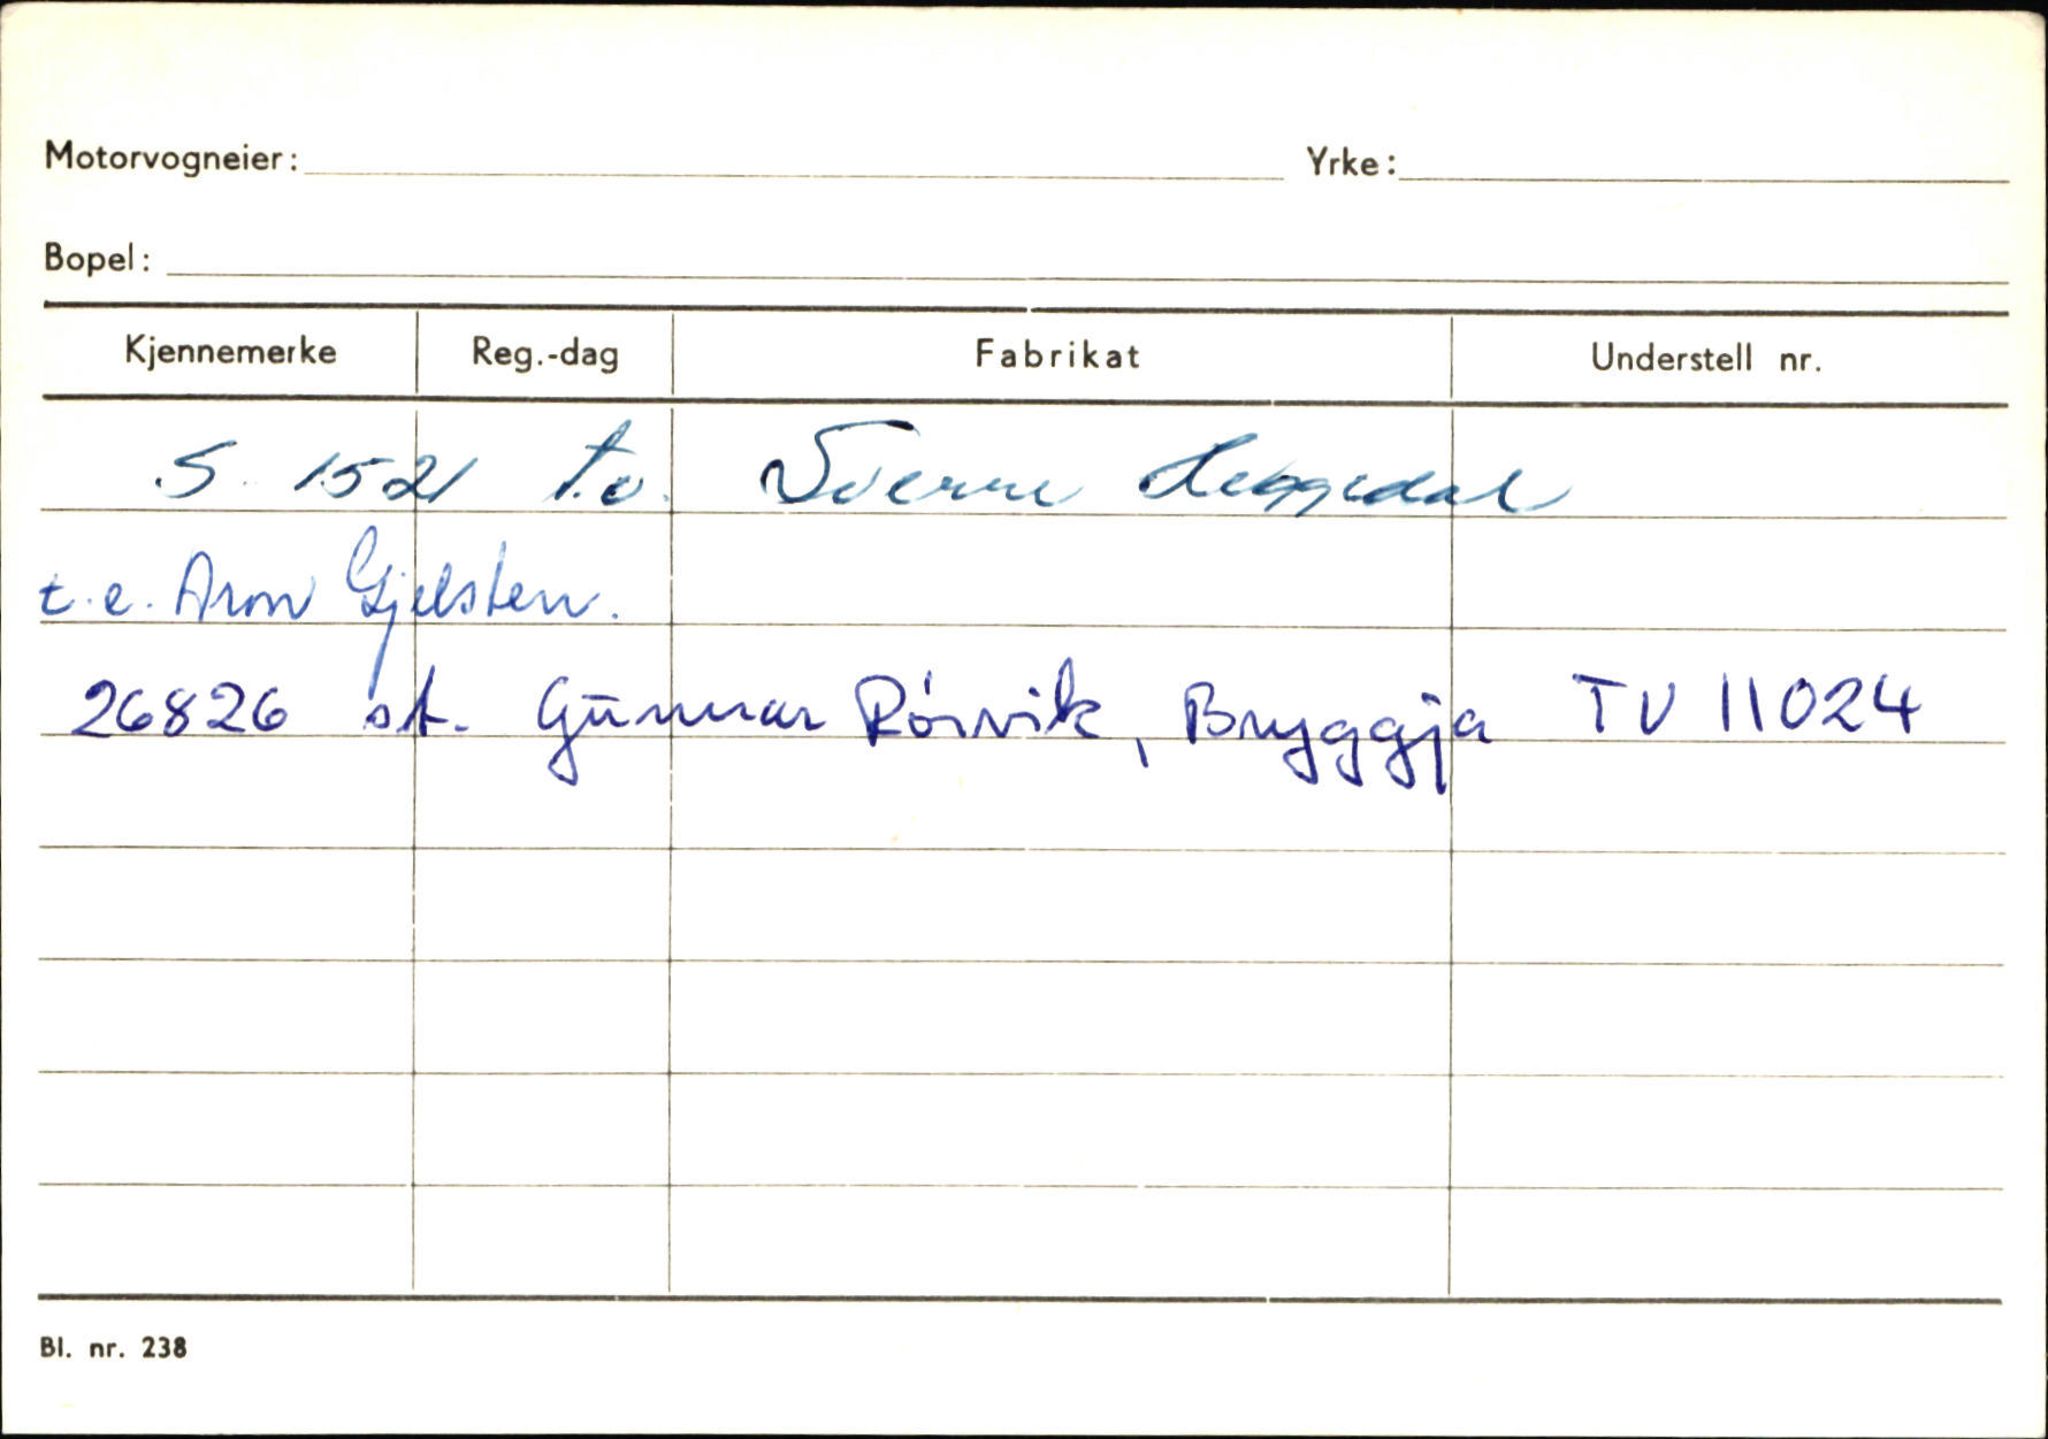 Motorvogneier: Yrke:
Bopel:
Kjennemerke Reg.-dag Fabrikat Understell nr.
S. 1521 t.o. Sverre
t.e. Arnv Gjelsten.
26826 st. Gunnar Rórvik, Bryggja TV 11024
Bl. nr. 238